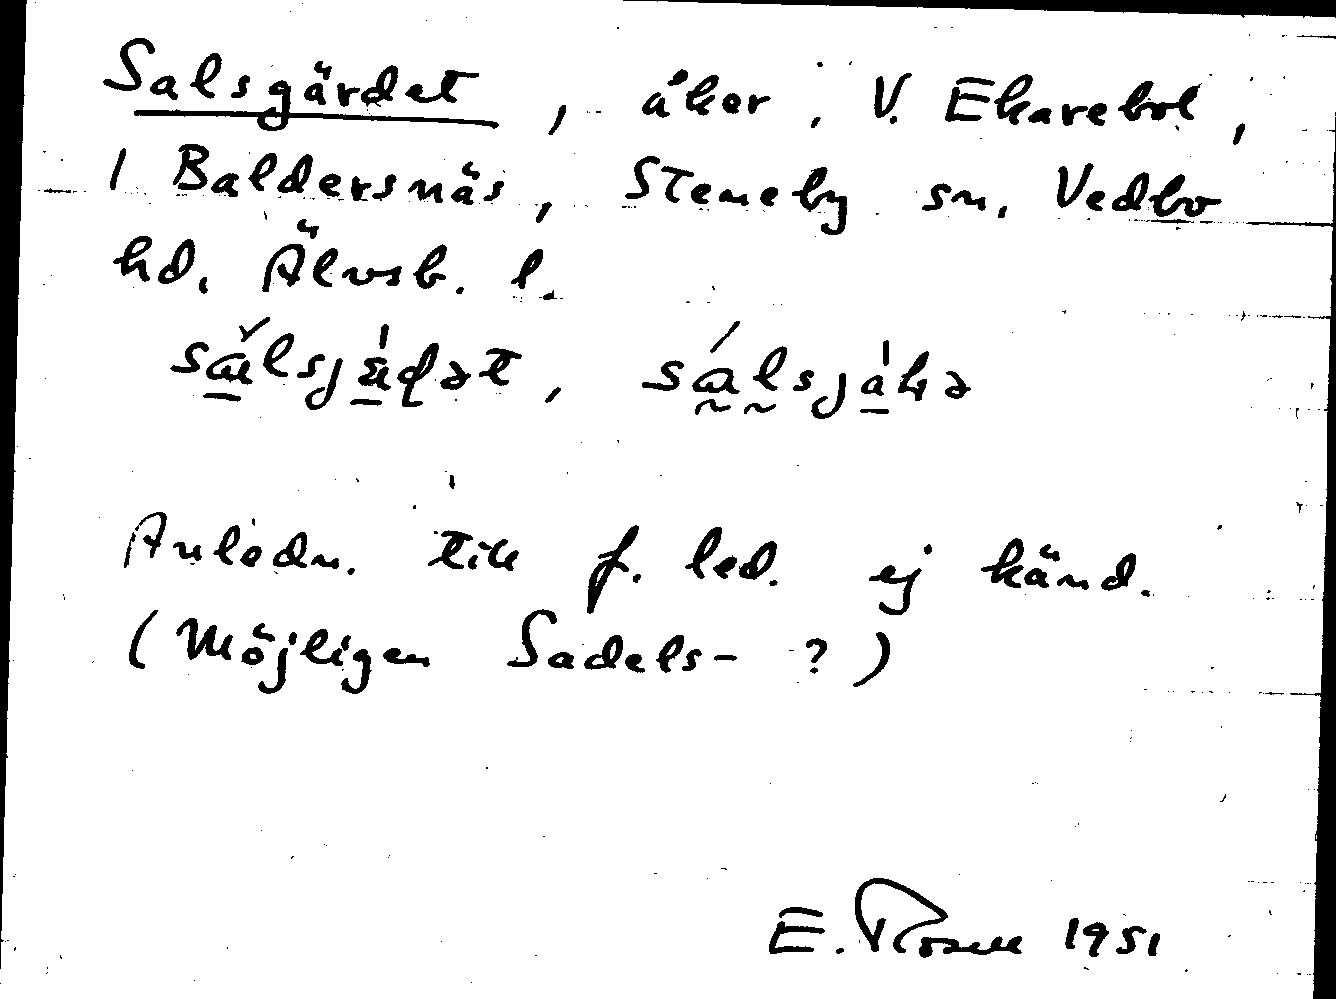 Salsgärdet, åker, V. Ekarebol,
1 Baldersnäs, Steneby sn, Vedbo
hd, Älvsb. l.
Anledn. till f. led. ej känd.
(Möjligen Sadels- ?)
E. Rosell 1951